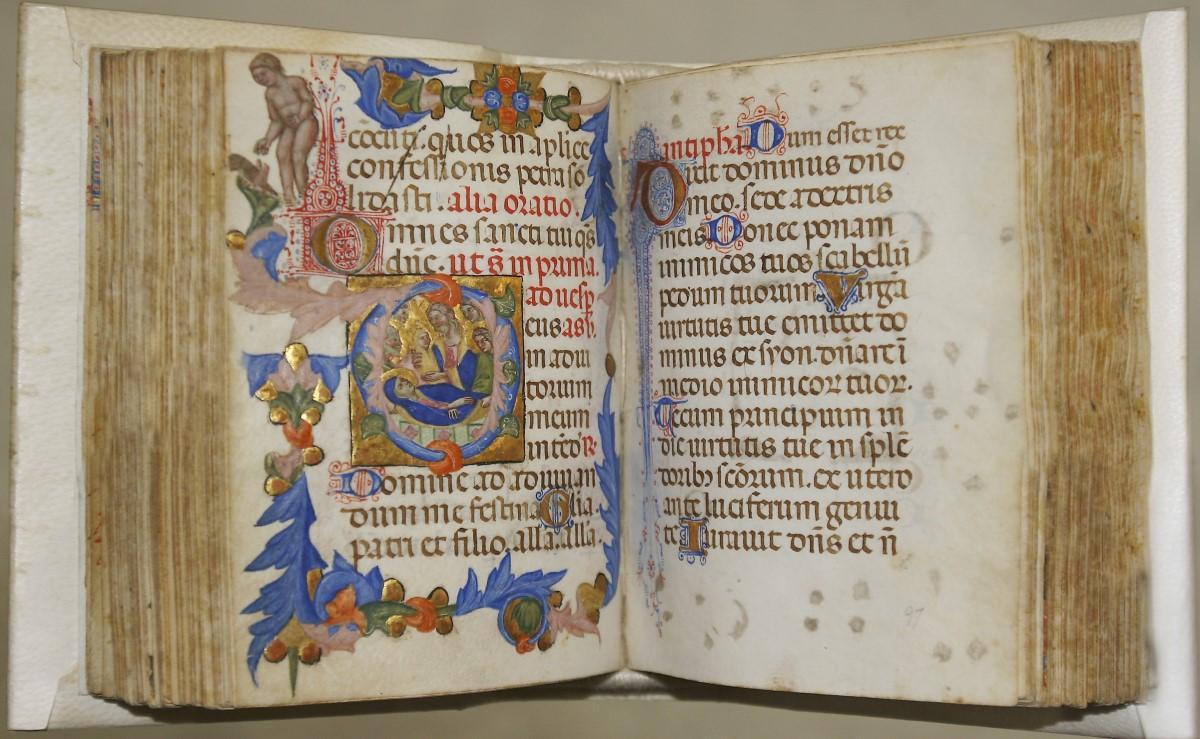 cōcuti. quos in aplice
confessionis petra sō
lidasti. alia oratio.
Omnes sancti tui qs
dñe. ut s̄ in prima.
ad uesp
eus asb
in adiu
torium
meum
intēd R
Domine ad adiuuan
dum me festina Glia
patri et filio. alla. alla.
antipha Dum esset rex
Dixit dominus dño
meo. sede a dextris
meis Donec ponam
inimicos tuos scabellū
pedum tuorum Virgā
uirtutis tue emittet do
minus ex syon. dñare ī
medio inimicor tuor.
Tecum principium in
die uirtutis tue in splē
doribꝫ scōrum. ex utero
ante luciferum genui
te Iurauit dñs et ñ
97